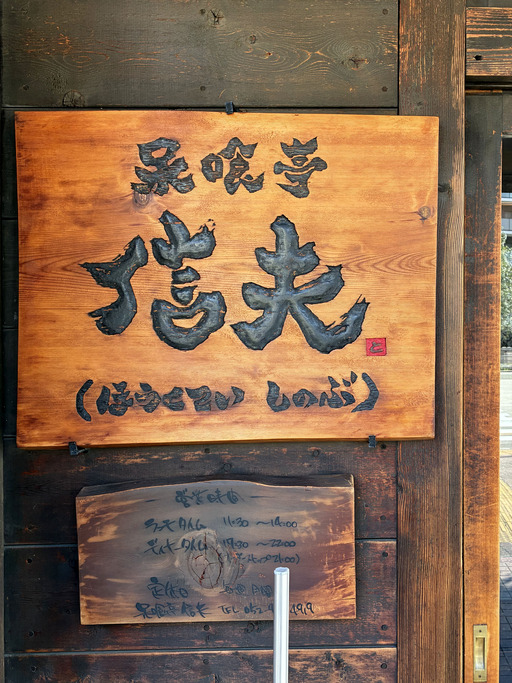 呆喰亭
信夫
(ほうくてい しのぶ)
営業時間
ランチタイム 11:30 ～14:00
ディナータイム 17:30 ～22:00
定休日
呆喰亭 信夫 TEL 052-